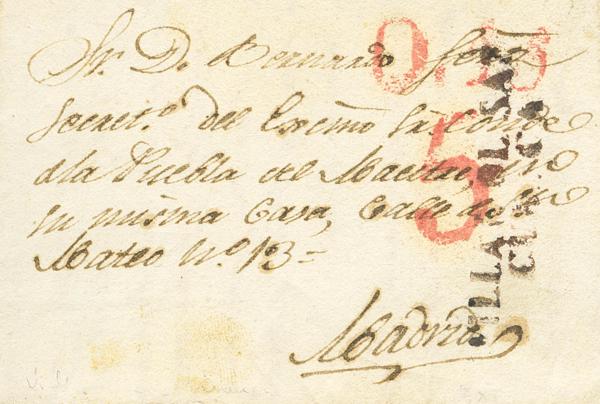 Sr. D. Bernardo
Secret.º del Exc̃mo Sr. Conde
dla Puebla del Maestre
su misma Casa, Calle de Sn
Mateo nº. 13=
Madrid
5